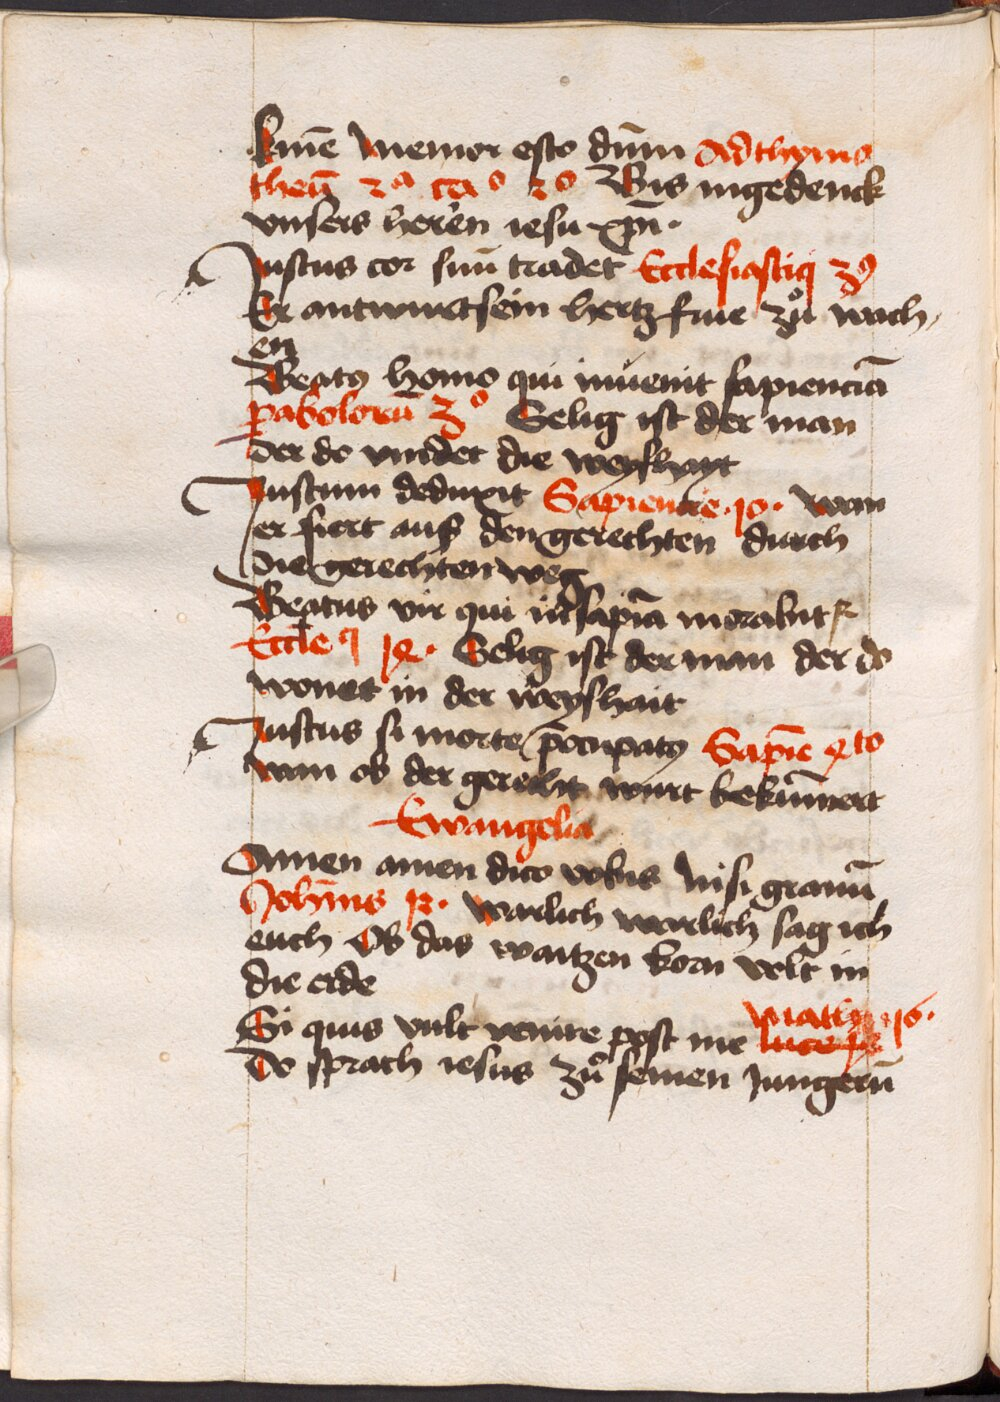 kme Memor esto dūm Ad thymo
theū 2ª ca° 2° Bis ingedenck
vnsers heren iesu xpī.
Iustus cor suū tradet Ecclesiastiq 39
Er antwurt sein hertz frue zů wach
en
Beatꝰ homo qui inuenit sapienciā
pabolorū 3° Selig ist der man
der do vindet die weyshayt
Iustum deduxit Sapiencie .10. wan
er fiert auß den gerechten durch
die gerechten weg
Beatus vir qui in sapīa morabitr
Eccleq 14. Selig ist der man der do
wonet in der weyshait
Iustus si morte p̄ocupatꝰ Sapīe 4to
wan ob der gerecht wurt bekūmert
Ewangelia
Amen amen dico vobis Nisi granū
Iohīnis 12. Warlich warlich sag ich
euch Ob das waitzen korn velt in
die erde
Math 16.
Si quis vult venire post me luce
Do sprach iesus zů seinen Jungerū